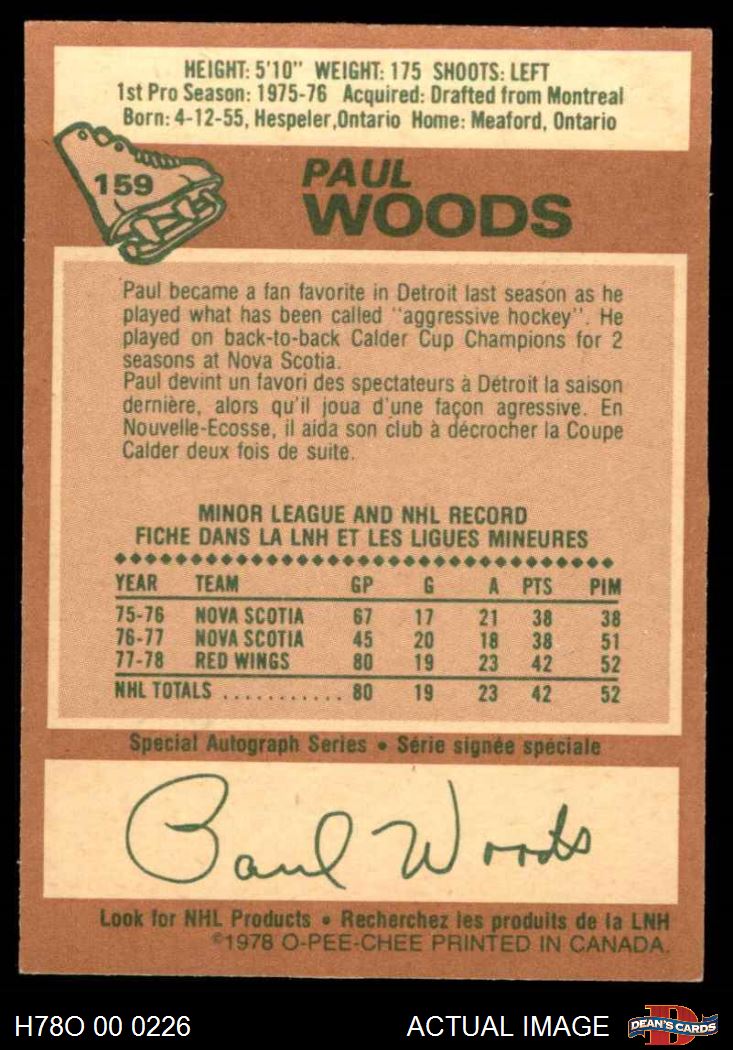 HEIGHT: 5'10" WEIGHT: 175 SHOOTS: LEFT
1st Pro Season: 1975-76 Acquired: Drafted from Montreal
Born: 4-12-55, Hespeler,Ontario Home: Meaford, Ontario
159
PAUL
WOODS
Paul became a fan favorite in Detroit last season as he
played what has been called "aggressive hockey". He
played on back-to-back Calder Cup Champions for 2
seasons at Nova Scotia.
Paul devint un favori des spectateurs à Détroit la saison
dernière, alors qu'il joua d'une façon agressive. En
Nouvelle-Ecosse, il aida son club à décrocher la Coupe
Calder deux fois de suite.
MINOR LEAGUE AND NHL RECORD
FICHE DANS LA LNH ET LES LIGUES MINEURES
YEAR TEAM GP G A PTS PIM
75-76 NOVA SCOTIA 67 17 21 38 38
76-77 NOVA SCOTIA 45 20 18 38 51
77-78 RED WINGS 80 19 23 42 52
NHL TOTALS ............ 80 19 23 42 52
Special Autograph Series • Série signée spéciale
Paul Woods
Look for NHL Products • Recherchez les produits de la LNH
©1978 O-PEE-CHEE PRINTED IN CANADA.
H78O 00 0226 ACTUAL IMAGE D DEAN'S CARDS